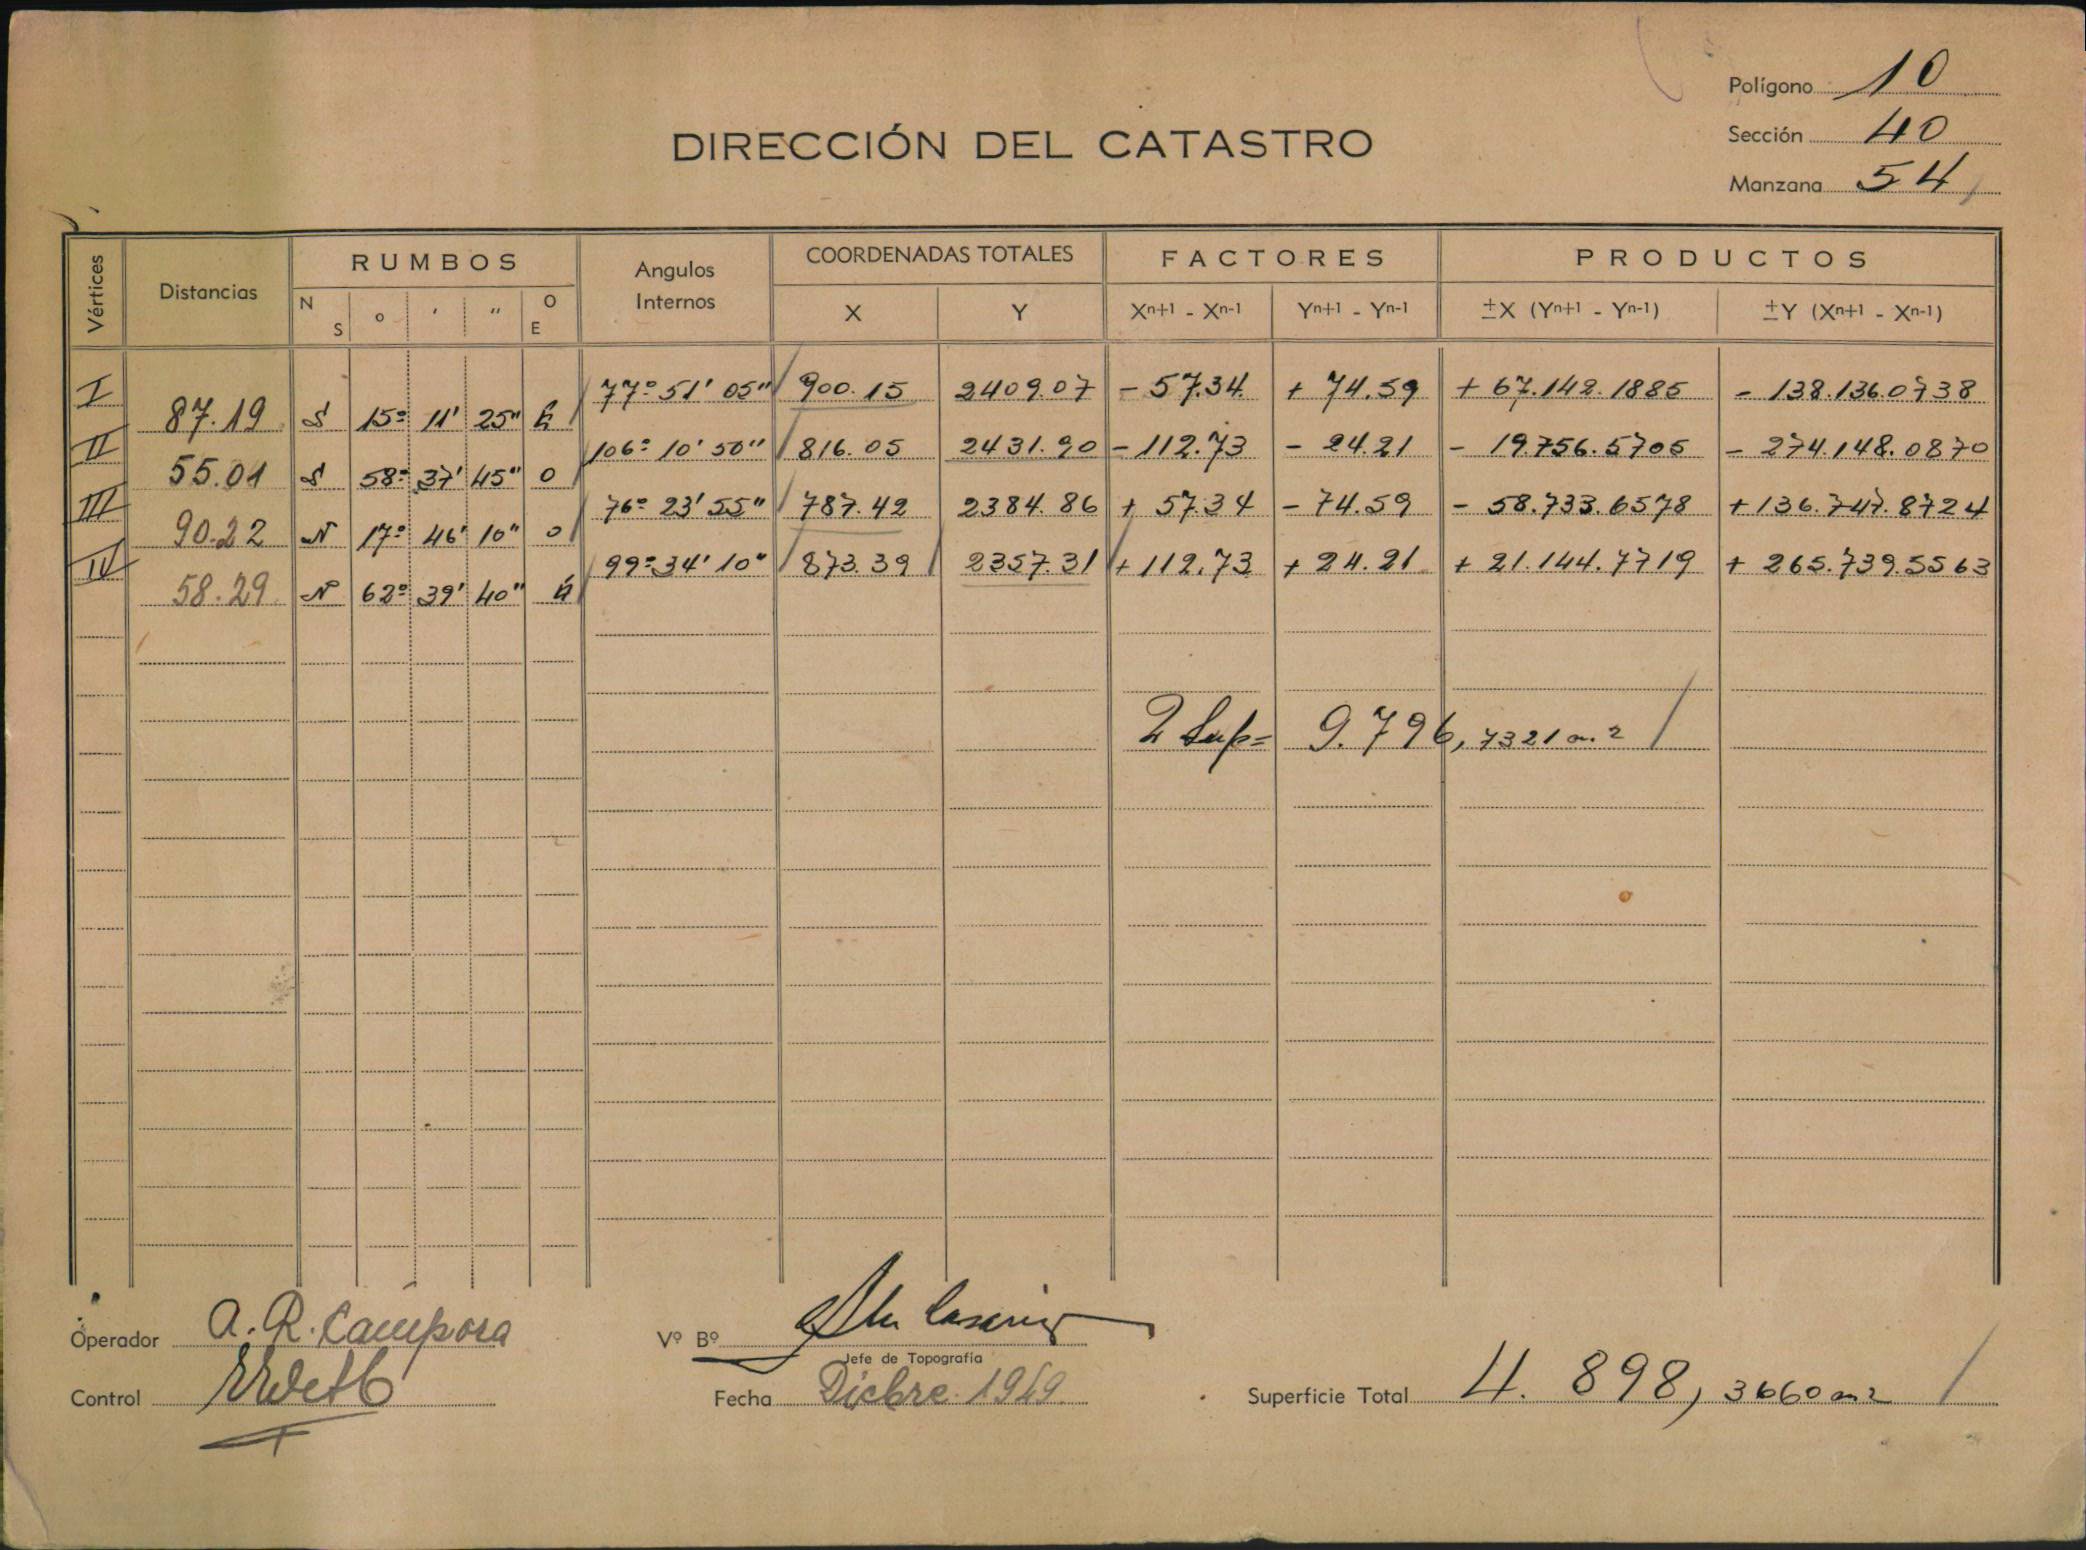 Polígono 10
DIRECCIÓN DEL CATASTRO
Sección 40
Manzana 54
Vértices Distancias RUMBOS Angulos Internos COORDENADAS TOTALES FACTORES PRODUCTOS
N S o ' " O E X Y Xn+1 - Xn-1 Yn+1 - Yn-1 ±X (Yn+1 - Yn-1) ±Y (Xn+1 - Xn-1)
I 77° 51' 05" 900.15 2409.07 - 57.34 + 74.59 + 67.142.1885 - 138.136.0738
87.19 S 15° 11' 25" E
II 106° 10' 50" 816.05 2431.90 - 112.73 - 24.21 - 19.756.5705 - 274.148.0870
55.01 S 58° 37' 45" O
III 76° 23' 55" 787.42 2384.86 + 57.34 - 74.59 - 58.733.6578 + 136.747.8724
90.22 N 17° 46' 10" O
IV 99° 34' 10" 873.39 2357.31 + 112.73 + 24.21 + 21.144.7719 + 265.739.5563
58.29 N 62° 39' 40" E
2 Sup= 9.796,7321 m2
Operador A. R. Campora
Vº Bº
Jefe de Topografía
Control
Fecha Dicbre. 1949
Superficie Total 4.898,3660 m2